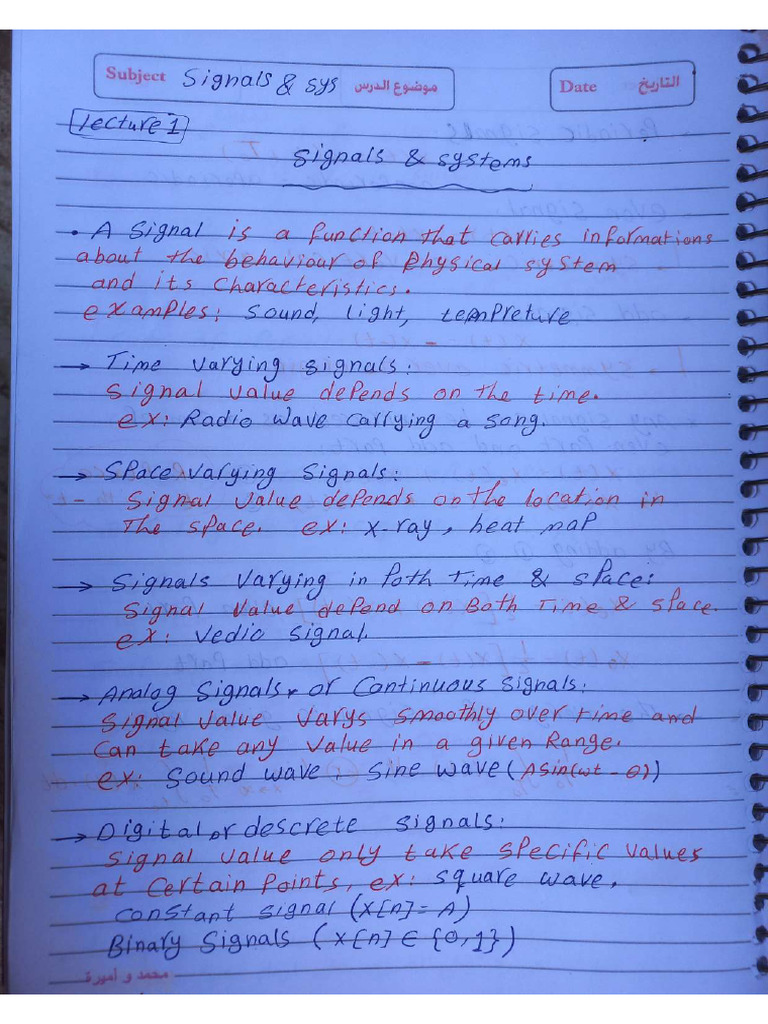 Subject Signals & sys موضوع الدرس
Date التاريخ
Lecture 1
Signals & systems
• A Signal is a function that carries informations
about the behaviour of Physical system
and its Characteristics.
examples: Sound, Light, tempreture
→ Time varying signals:
Signal value depends on the time.
ex: Radio wave carrying a song.
→ Space varying Signals:
- Signal value depends on the location in
The space. ex: X-ray, heat map
→ Signals varying in Poth time & space:
Signal Value depend on Both Time & space.
ex: Vedio signal.
→ Analog Signals, or Continuous Signals:
Signal value varys smoothly over time and
Can take any value in a given Range.
ex: Sound wave, Sine wave (Asin(wt - θ))
→ Digital or descrete signals:
Signal value only take specific values
at Certain Points, ex: square wave,
constant signal (X[n] = A)
Binary Signals (X[n] ∈ {0,1})
محمد و أميرة